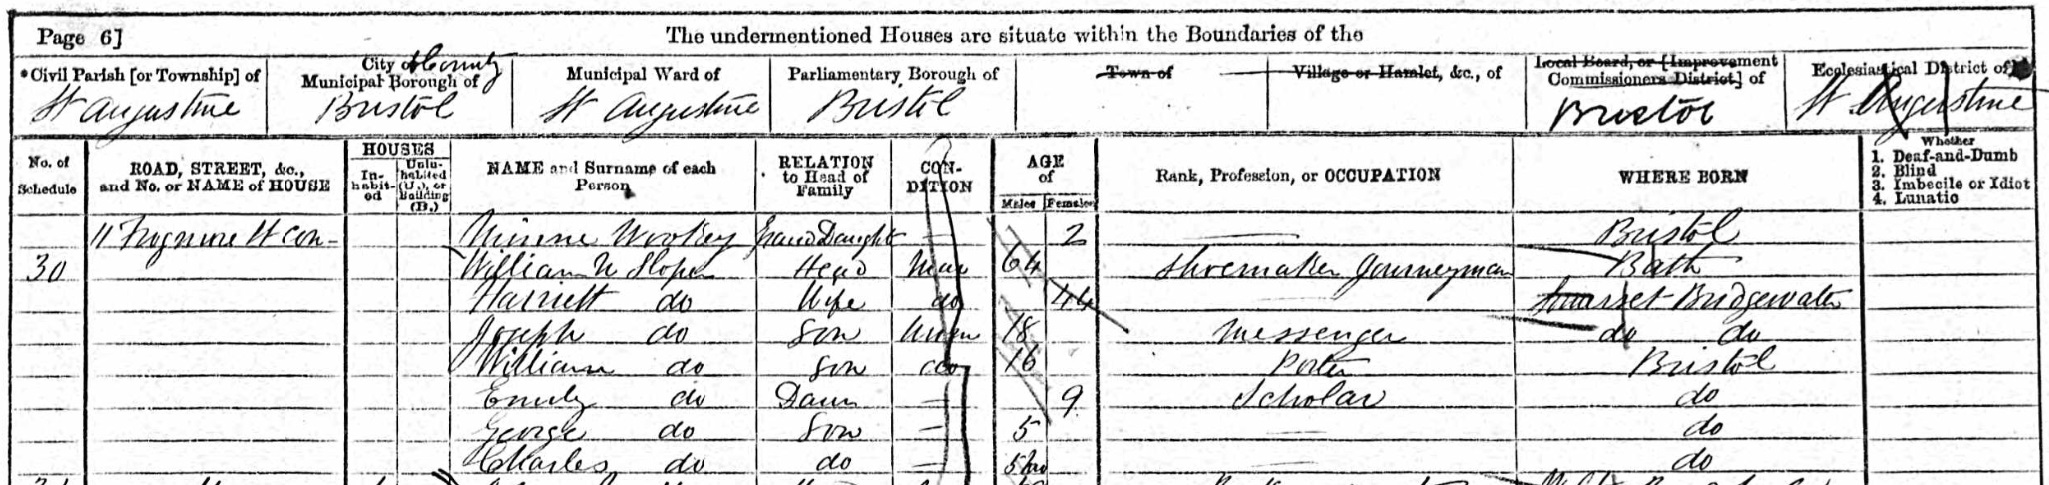 Page 6] The undermentioned Houses are situate within the Boundaries of the
Civil Parish [or Township] of St Augustine
City & County Municipal Borough of Bristol
Municipal Ward of St Augustine
Parliamentary Borough of Bristol
Town of
Village or Hamlet, &c., of
Local Board, or [Improvement Commissioners District] of Bristol
Ecclesiastical District of St Augustine
No. of Schedule
ROAD, STREET, &c., and No. or NAME of HOUSE
HOUSES In-habit-ed Uninhabited (U.), or Building (B.)
NAME and Surname of each Person
RELATION to Head of Family
CON-DITION
AGE of Males Females
Rank, Profession, or OCCUPATION
WHERE BORN
Whether 1. Deaf-and-Dumb 2. Blind 3. Imbecile or Idiot 4. Lunatic
11 Frogmore St con- Minnie Wookey Grand Daught — 2 — Bristol
30 William Sloper Head Mar 64 Shoemaker Journeyman Bath
Harriett do Wife do 44 — Somerset Bridgewater
Joseph do Son Unm 18 Messenger do do
William do Son do 16 Porter Bristol
Emily do Daur — 9 Scholar do
George do Son — 5 — do
Charles do do — 5mo do